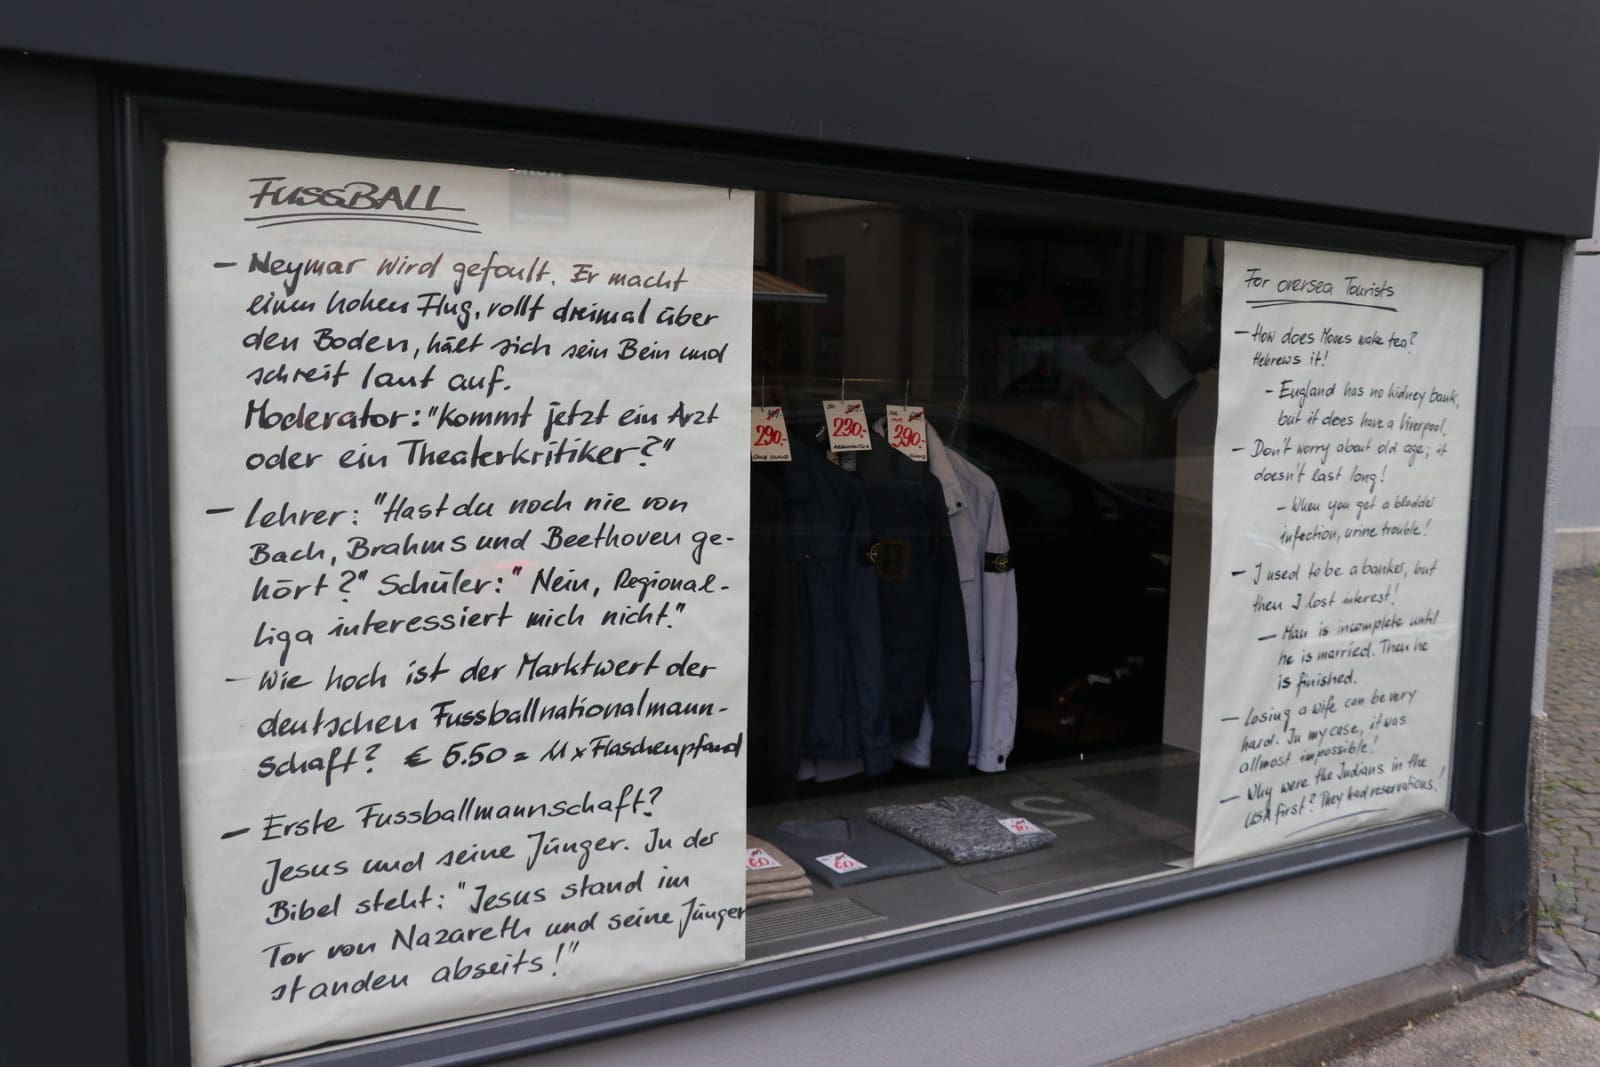 FUSSBALL
- Neymar wird gefoult. Er macht
einen hohen Flug, rollt dreimal über
den Boden, hält sich sein Bein und
schreit laut auf.
Moderator: "Kommt jetzt ein Arzt
oder ein Theaterkritiker?"
- Lehrer: "Hast du noch nie von
Bach, Brahms und Beethoven ge-
hört?" Schüler: "Nein, Regional-
Liga interessiert mich nicht."
- Wie hoch ist der Marktwert der
deutschen Fussballnationalmann-
schaft? € 5.50 = 11 x Flaschenpfand
- Erste Fussballmannschaft?
Jesus und seine Jünger. In der
Bibel steht: "Jesus stand im
Tor von Nazareth und seine Jünger
standen abseits!"
290.-
230.-
390.-
60.-
60.-
For oversea Tourists
- How does Moses make tea?
Hebrews it!
- England has no kidney bank,
but it does have a liverpool!
- Don't worry about old age; it
doesn't last long!
- When you get a bladder
infection, urine trouble!
- I used to be a banker, but
then I lost interest!
- Man is incomplete until
he is married. Then he
is finished.
- Losing a wife can be very
hard. In my case, it was
allmost impossible!
- Why were the Indians in the
USA first? They had reservations!